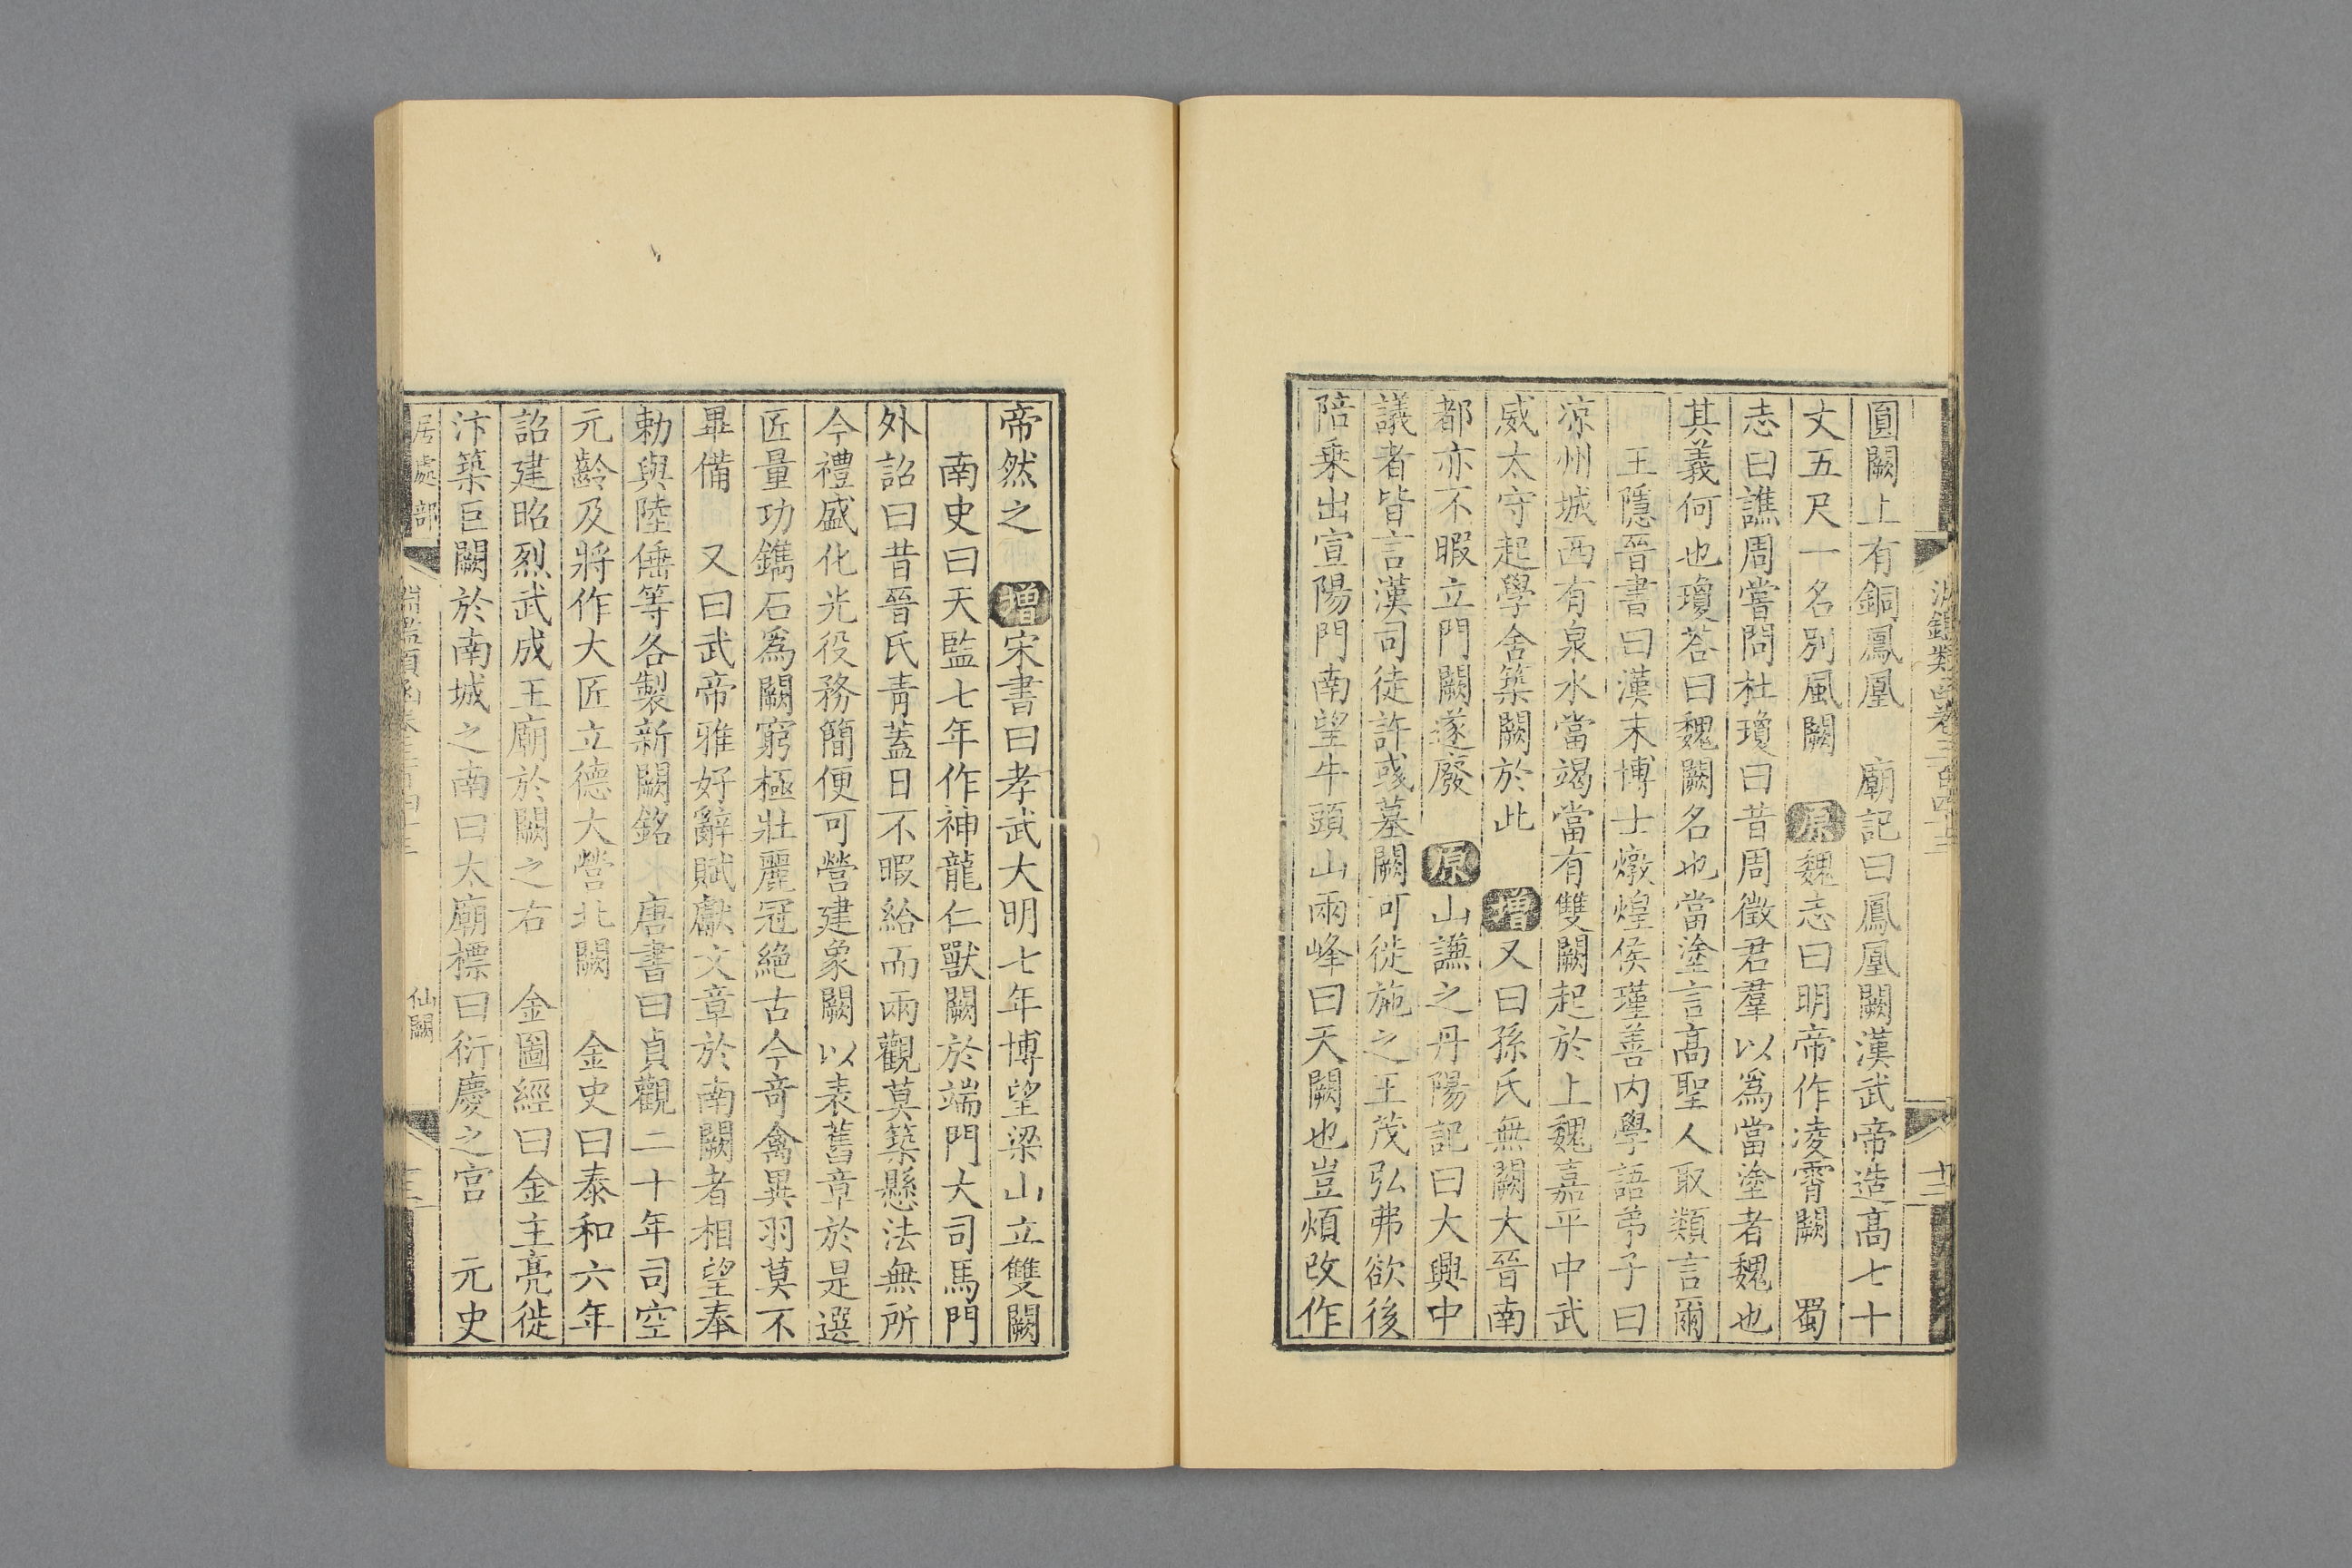 圓闕上有銅鳳凰　廟記曰鳳凰闕漢武帝造高七十
丈五尺一名別風闕　原魏志曰明帝作凌霄闕　蜀
志曰譙周嘗問杜瓊曰昔周徵君羣以爲當塗者魏也
其義何也瓊荅曰魏闕名也當塗言高聖人取類言爾
王隱晉書曰漢末博士燉煌侯瑾善内學語弟子曰
凉州城西有泉水當竭當有雙闕起於上魏嘉平中武
威太守起學舍築闕於此　增又曰孫氏無闕大晉南
都亦不暇立門闕遂廢　原山謙之丹陽記曰大興中
議者皆言漢司徒許彧墓闕可徙施之王茂弘弗欲後
陪乘出宣陽門南望牛頭山兩峰曰天闕也豈煩改作
帝然之　增宋書曰孝武大明七年博望梁山立雙闕
南史曰天監七年作神龍仁獸闕於端門大司馬門
外詔曰昔晉氏青蓋日不暇給而兩觀莫築懸法無所
今禮盛化光役務簡便可營建象闕以表舊章於是選
匠量功鐫石爲闕窮極壯麗冠絶古今奇禽異羽莫不
畢備　又曰武帝雅好辭賦獻文章於南闕者相望奉
勅與陸倕等各製新闕銘　唐書曰貞觀二十年司空
元齡及將作大匠立德大營北闕　金史曰泰和六年
詔建昭烈武成王廟於闕之右　金圖經曰金主亮徙
汴築巨闕於南城之南曰太廟標曰衍慶之宫　元史
居處部
淵鑑類函卷三百四十三
仙闕